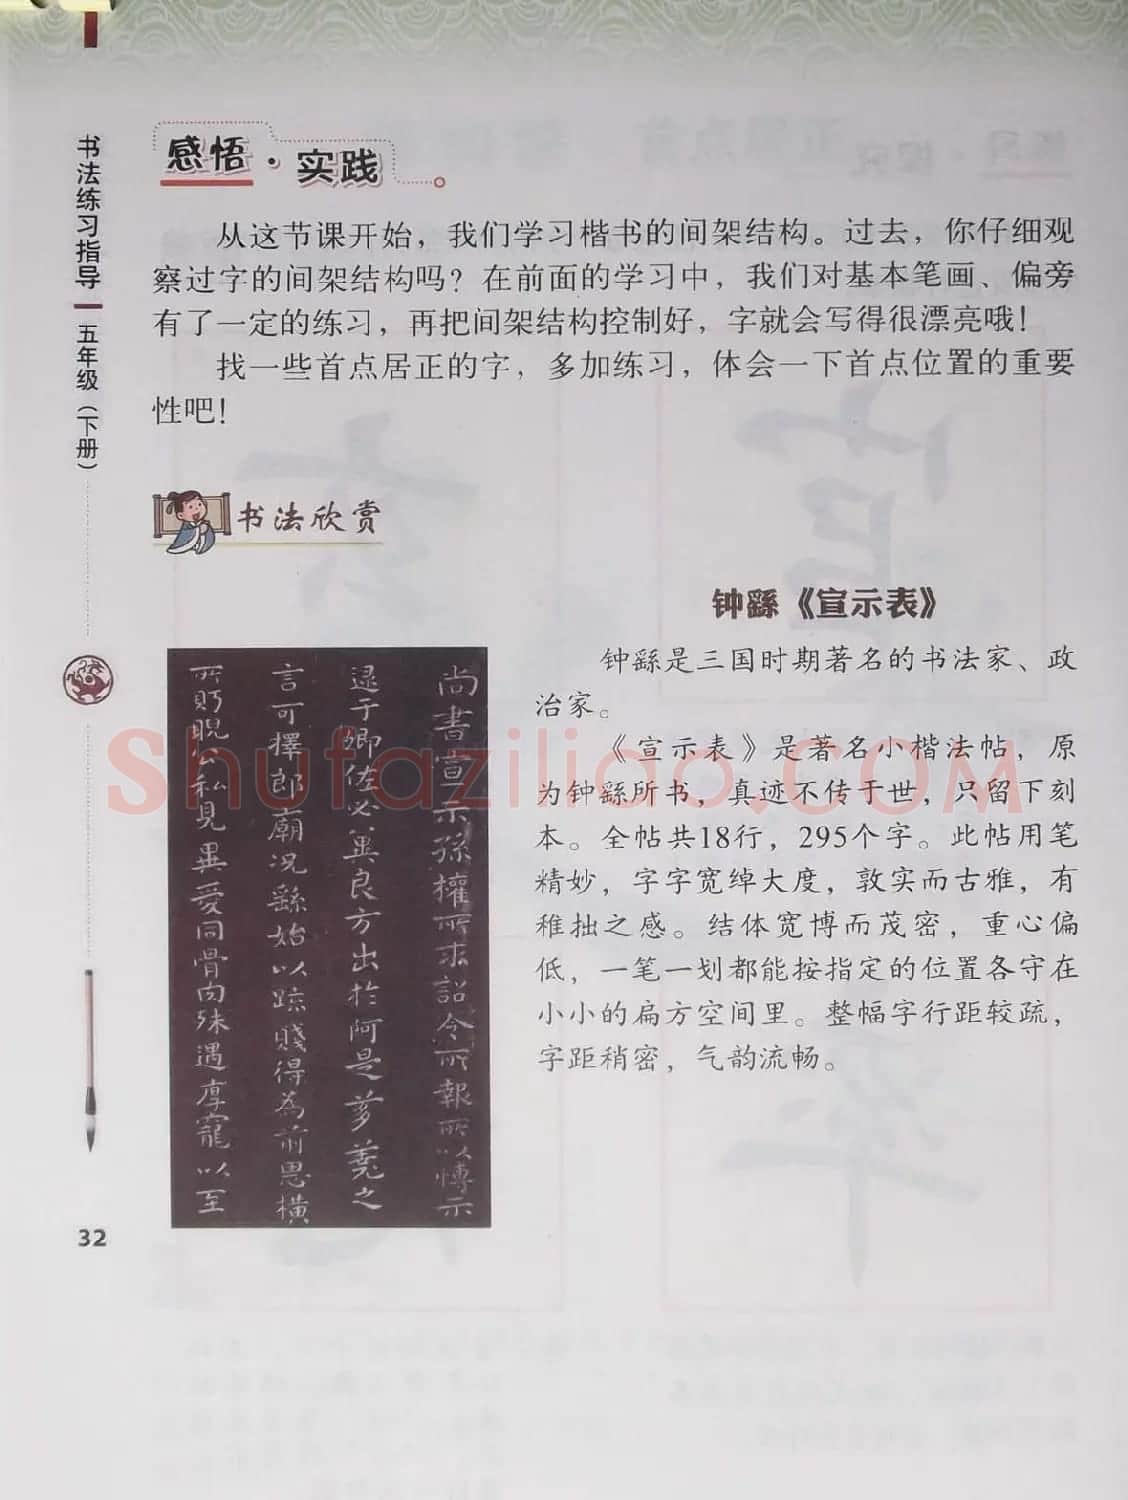 书法练习指导
五年级（下册）
感悟·实践
从这节课开始，我们学习楷书的间架结构。过去，你仔细观
察过字的间架结构吗？在前面的学习中，我们对基本笔画、偏旁
有了一定的练习，再把间架结构控制好，字就会写得很漂亮哦！
找一些首点居正的字，多加练习，体会一下首点位置的重要
性吧！
书法欣赏
钟繇《宣示表》
钟繇是三国时期著名的书法家、政
治家。
《宣示表》是著名小楷法帖，原
为钟繇所书，真迹不传于世，只留下刻
本。全帖共18行，295个字。此帖用笔
精妙，字字宽绰大度，敦实而古雅，有
稚拙之感。结体宽博而茂密，重心偏
低，一笔一划都能按指定的位置各守在
小小的扁方空间里。整幅字行距较疏，
字距稍密，气韵流畅。
尚書宣示孫權所求詔令所報所以博示
逮于卿佐必冀良方出於阿是芻蕘之
言可擇郎廟況繇始以疏賤得為前恩橫
所眄睨公私見異愛同骨肉殊遇厚寵以至
32
Shufaziliao.COM